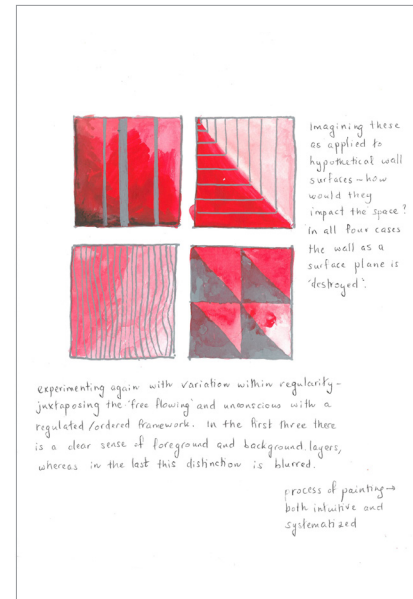 Imagining these
as applied to
hypothetical wall
surfaces – how
would they
impact the space?
In all four cases
the wall as a
surface plane is
'destroyed'.
experimenting again with variation within regularity –
juxtaposing the 'free flowing' and unconscious with a
regulated/ordered framework. In the first three there
is a clear sense of foreground and background layers,
whereas in the last this distinction is blurred.
process of painting →
both intuitive and
systematized